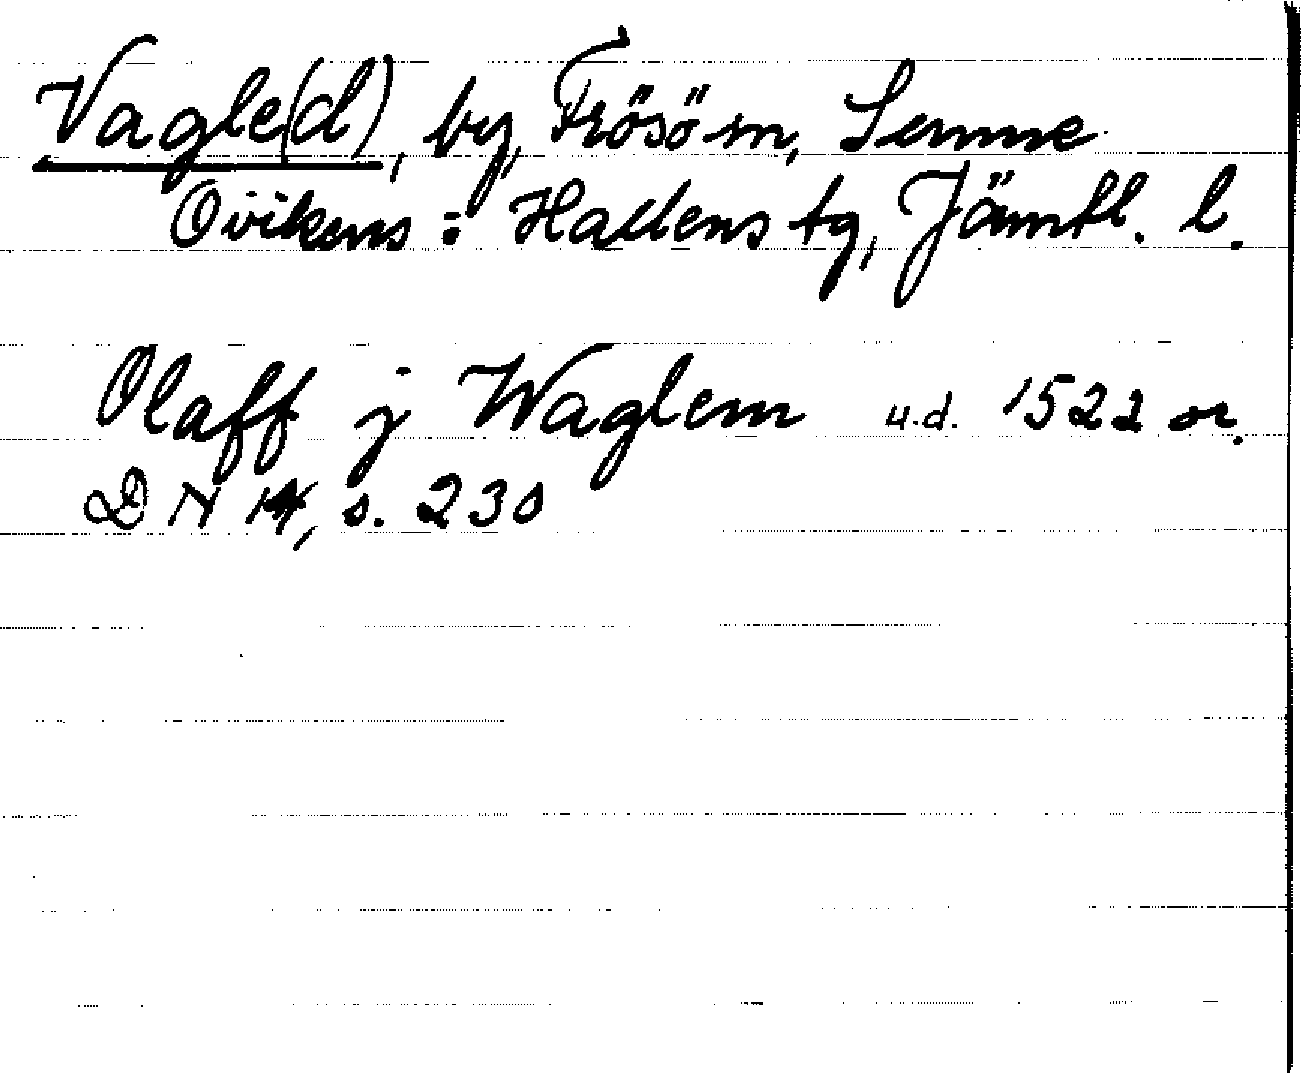 Vagle(d), by, Frösö sn, Sunne
Ovikens o Hallens tg, Jämtl. l.
Olaff j Waglem u.d. 1522 or.
DN 14, s. 230